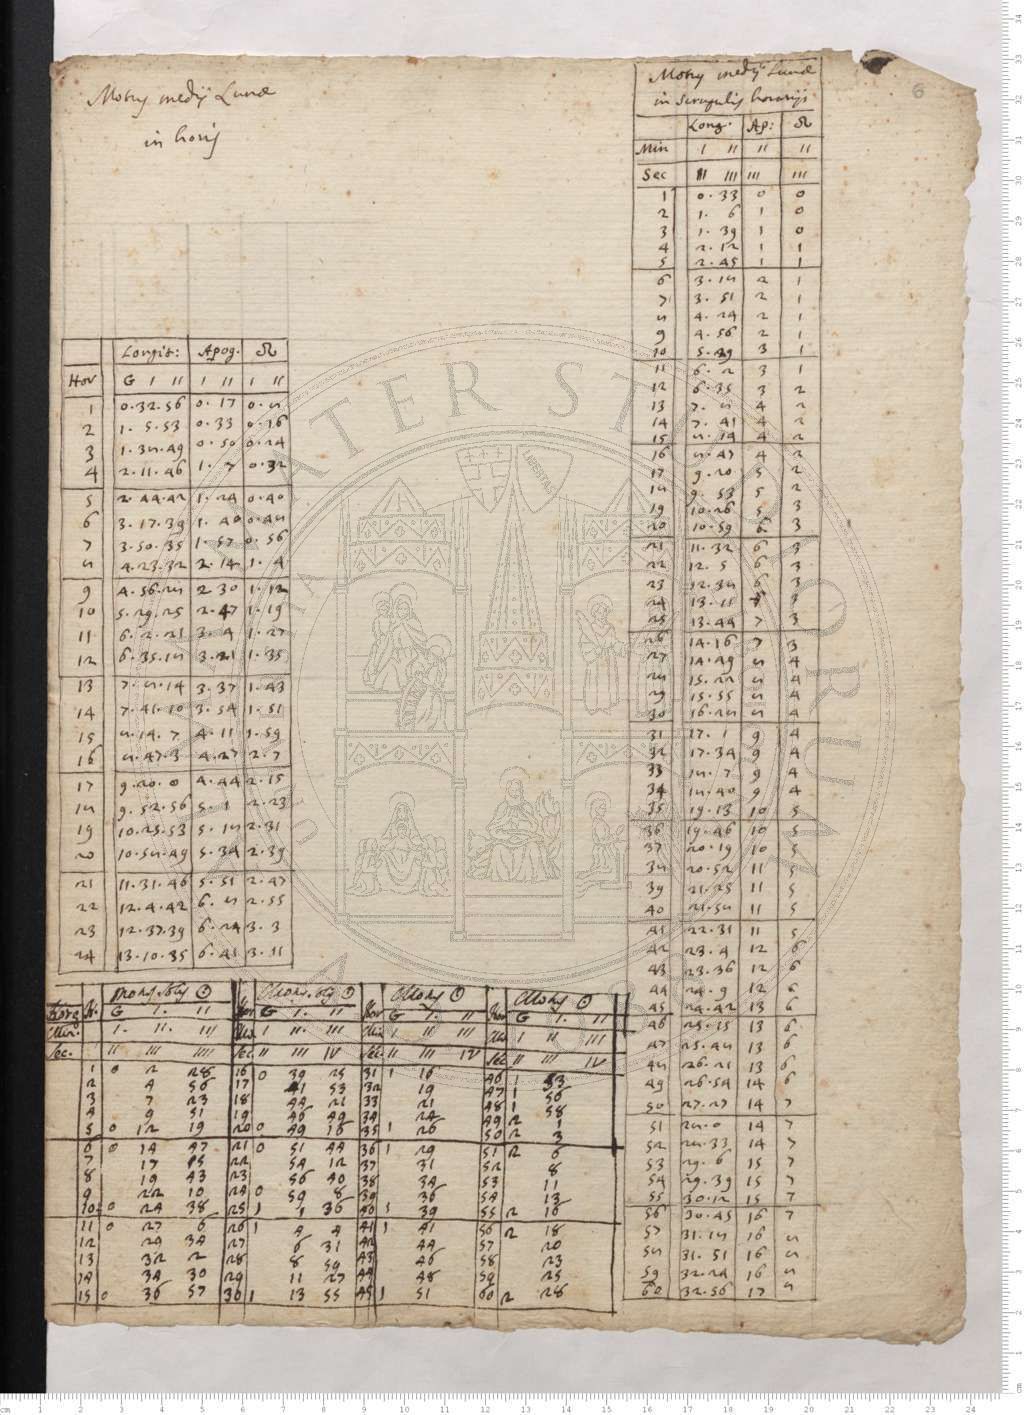 6
Motus medij Lunæ
in horis
Longit: Apog. ☊
Hor G I II I II I II
1 0.32.56 0.17 0.8
2 1.5.53 0.33 0.16
3 1.38.49 0.50 0.24
4 2.11.46 1.7 0.32
5 2.44.42 1.24 0.40
6 3.17.39 1.40 0.48
7 3.50.35 1.57 0.56
8 4.23.32 2.14 1.4
9 4.56.28 2 30 1.12
10 5.29.25 2.47 1.19
11 6.2.21 3.4 1.27
12 6.35.18 3.21 1.35
13 7.8.14 3.37 1.43
14 7.41.10 3.54 1.51
15 8.14.7 4.11 1.59
16 8.47.3 4.27 2.7
17 9.20.0 4.44 2.15
18 9.52.56 5.1 2.23
19 10.25.53 5.18 2.31
20 10.58.49 5.34 2.39
21 11.31.46 5.51 2.47
22 12.4.42 6.8 2.55
23 12.37.39 6.24 3.3
24 13.10.35 6.41 3.11
Motus medij Lunæ
in scrupulis horarijs
Long. Ap: ☊
Min I II II II
Sec II III III III
1 0.33 0 0
2 1.6 1 0
3 1.39 1 0
4 2.12 1 1
5 2.45 1 1
6 3.18 2 1
7 3.51 2 1
8 4.24 2 1
9 4.56 2 1
10 5.29 3 1
11 6.2 3 1
12 6.35 3 2
13 7.8 4 2
14 7.41 4 2
15 8.14 4 2
16 8.47 4 2
17 9.20 5 2
18 9.53 5 2
19 10.26 5 3
20 10.59 6 3
21 11.32 6 3
22 12.5 6 3
23 12.38 6 3
24 13.11 7 3
25 13.44 7 3
26 14.16 7 3
27 14.49 8 4
28 15.22 8 4
29 15.55 8 4
30 16.28 8 4
31 17.1 9 4
32 17.34 9 4
33 18.7 9 4
34 18.40 9 4
35 19.13 10 5
36 19.46 10 5
37 20.19 10 5
38 20.52 11 5
39 21.25 11 5
40 21.58 11 5
41 22.31 11 5
42 23.4 12 6
43 23.36 12 6
44 24.9 12 6
45 24.42 13 6
46 25.15 13 6
47 25.48 13 6
48 26.21 13 6
49 26.54 14 6
50 27.27 14 7
51 28.0 14 7
52 28.33 14 7
53 29.6 15 7
54 29.39 15 7
55 30.12 15 7
56 30.45 16 7
57 31.18 16 8
58 31.51 16 8
59 32.24 16 8
60 32.56 17 8
Motus Solis ☉ Motus Solis ☉ Motus ☉ Motus ☉
Horæ G I. II Hor G I. II Hor G I. II Hor G I. II
Min. I. II. III Min I II III Min I II III Min I II III
Sec. II III IIII Sec II III IV Sec. II III IV Sec II III IV
1 0 2 28 16 0 39 25 31 1 16 46 1 53
2 4 56 17 41 53 32 19 47 1 56
3 7 23 18 44 21 33 21 48 1 58
4 9 51 19 46 49 34 24 49 2 1
5 0 12 19 20 0 49 16 35 1 26 50 2 3
6 0 14 47 21 0 51 44 36 1 29 51 2 6
7 17 15 22 54 12 37 31 52 8
8 19 43 23 56 40 38 34 53 11
9 22 10 24 0 59 8 39 36 54 13
10 0 24 38 25 1 1 36 40 1 39 55 2 16
11 0 27 6 26 1 4 4 41 1 41 56 2 18
12 29 34 27 6 31 42 44 57 20
13 32 2 28 8 59 43 46 58 23
14 34 30 29 11 27 44 48 59 25
15 0 36 57 30 1 13 55 45 1 51 60 2 28
ALMA MATER STUDIORUM
LIBERTAS